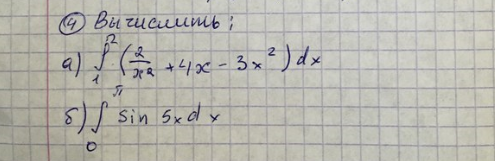 ④ Вычислить:
а) ∫₁² (2/x² + 4x - 3x²) dx
б) ∫₀^π sin 5x dx